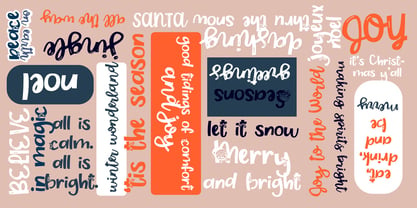 peace
on earth
all the way
jingle
noel
BELIEVE
in magic
all is
calm.
all is
bright.
winter wonderland
'tis the season
santa
good tidings of comfort
and joy
thru the snow
dashing
Seasons
greetings
let it snow
Merry
and bright
joyeux
noel
Joy to the World
making spirits bright
Joy
it's Christ-
mas y'all
eat,
drink,
and
be
merry